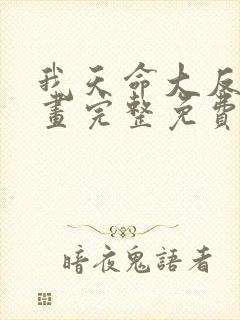 我天命大反
畫完整免費
暗夜鬼語者